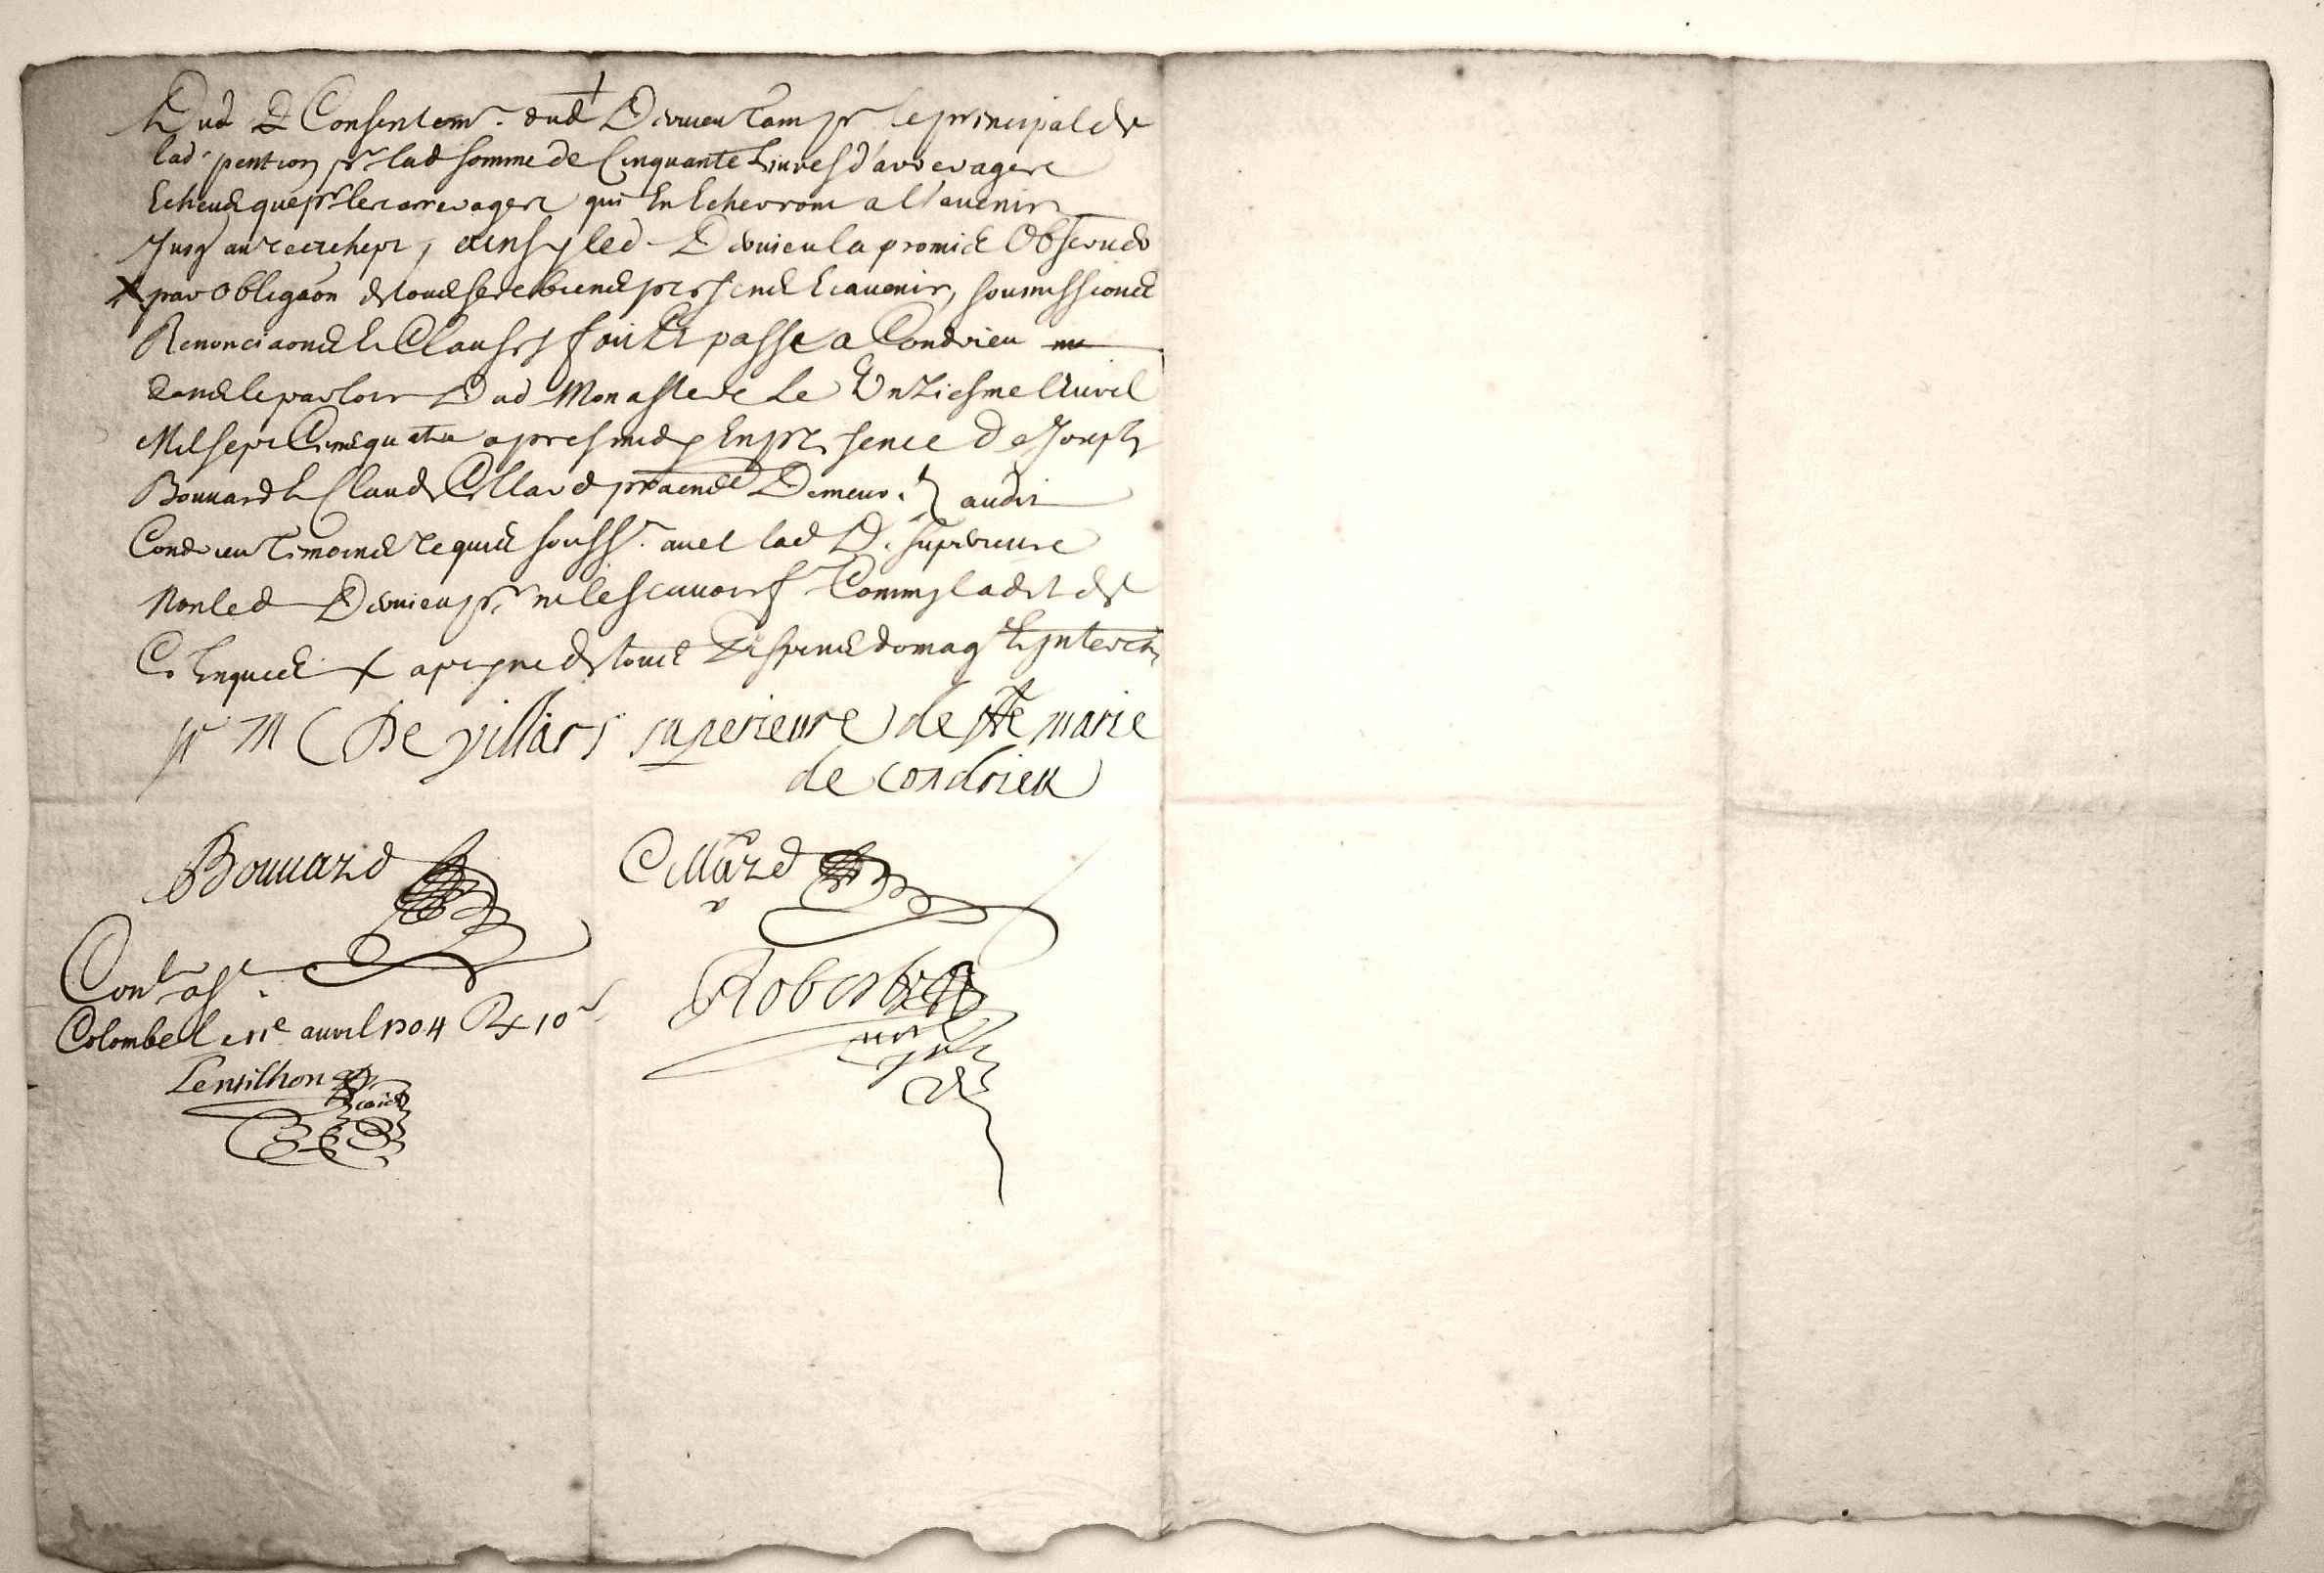 Dud & Consentem.t dud Deruieu tam pr le principal de
lad. pention pr lad somme de Cinquante Liures d'arrerages
Echeus que pr les arrerages qui En Echerront a l'auenir
Jusq au rachept, ainsy led Deruieu la promis Obseruer
X par Obligaon de tous ses biens presens & auenir, soumissions
Renonciaons & Clauses fait & passe a Condrieu
dans le parloir Dud Monastere Le Unziesme Auril
Mil sept Cens quatre apres midy En presence De Joseph
Bouuard & Claude Cillard praticiens Demeur. audit
Condrieu temoins requis souss.t auec lad D. superieure
Non led Deruieu pr ne le scauoir Comm il a dit de
Ce Enquis X a peyne de tous despens domag & Interests
sr M De villars superieure de Ste marie
de condrieu
Bouuard Cillard
Con.le a Ste
Colombe le 11e auril 1704 R 10s
Robert
Lentilhon